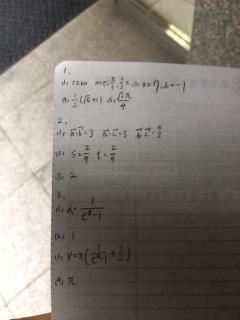 1.
(1) 1260 (2) 0, π/3, 5/3π (3) a=7, b=-1
(4) 1/2(√5+1) (5) √2π/4
2.
(1) a⃗·b⃗=3 a⃗·c⃗=3 b⃗·c⃗=9/2
(2) s=2/9 t=2/9
(3) 2
3.
(1) α=1/(e^π-1)
(2) 1
(3) V=π(1/(e^π-1)+1/2)
(4) π